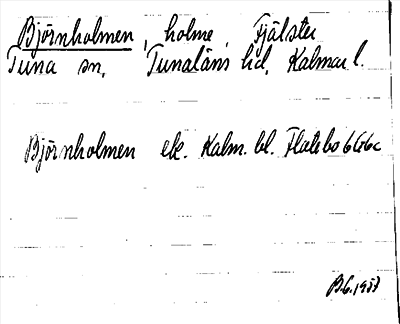 Björnholmen, holme, Fjälster
Tuna sn, Tunaläns hd, Kalmar l.
Björnholmen ek. Kalm. bl. Flatebo 6G6c
1933